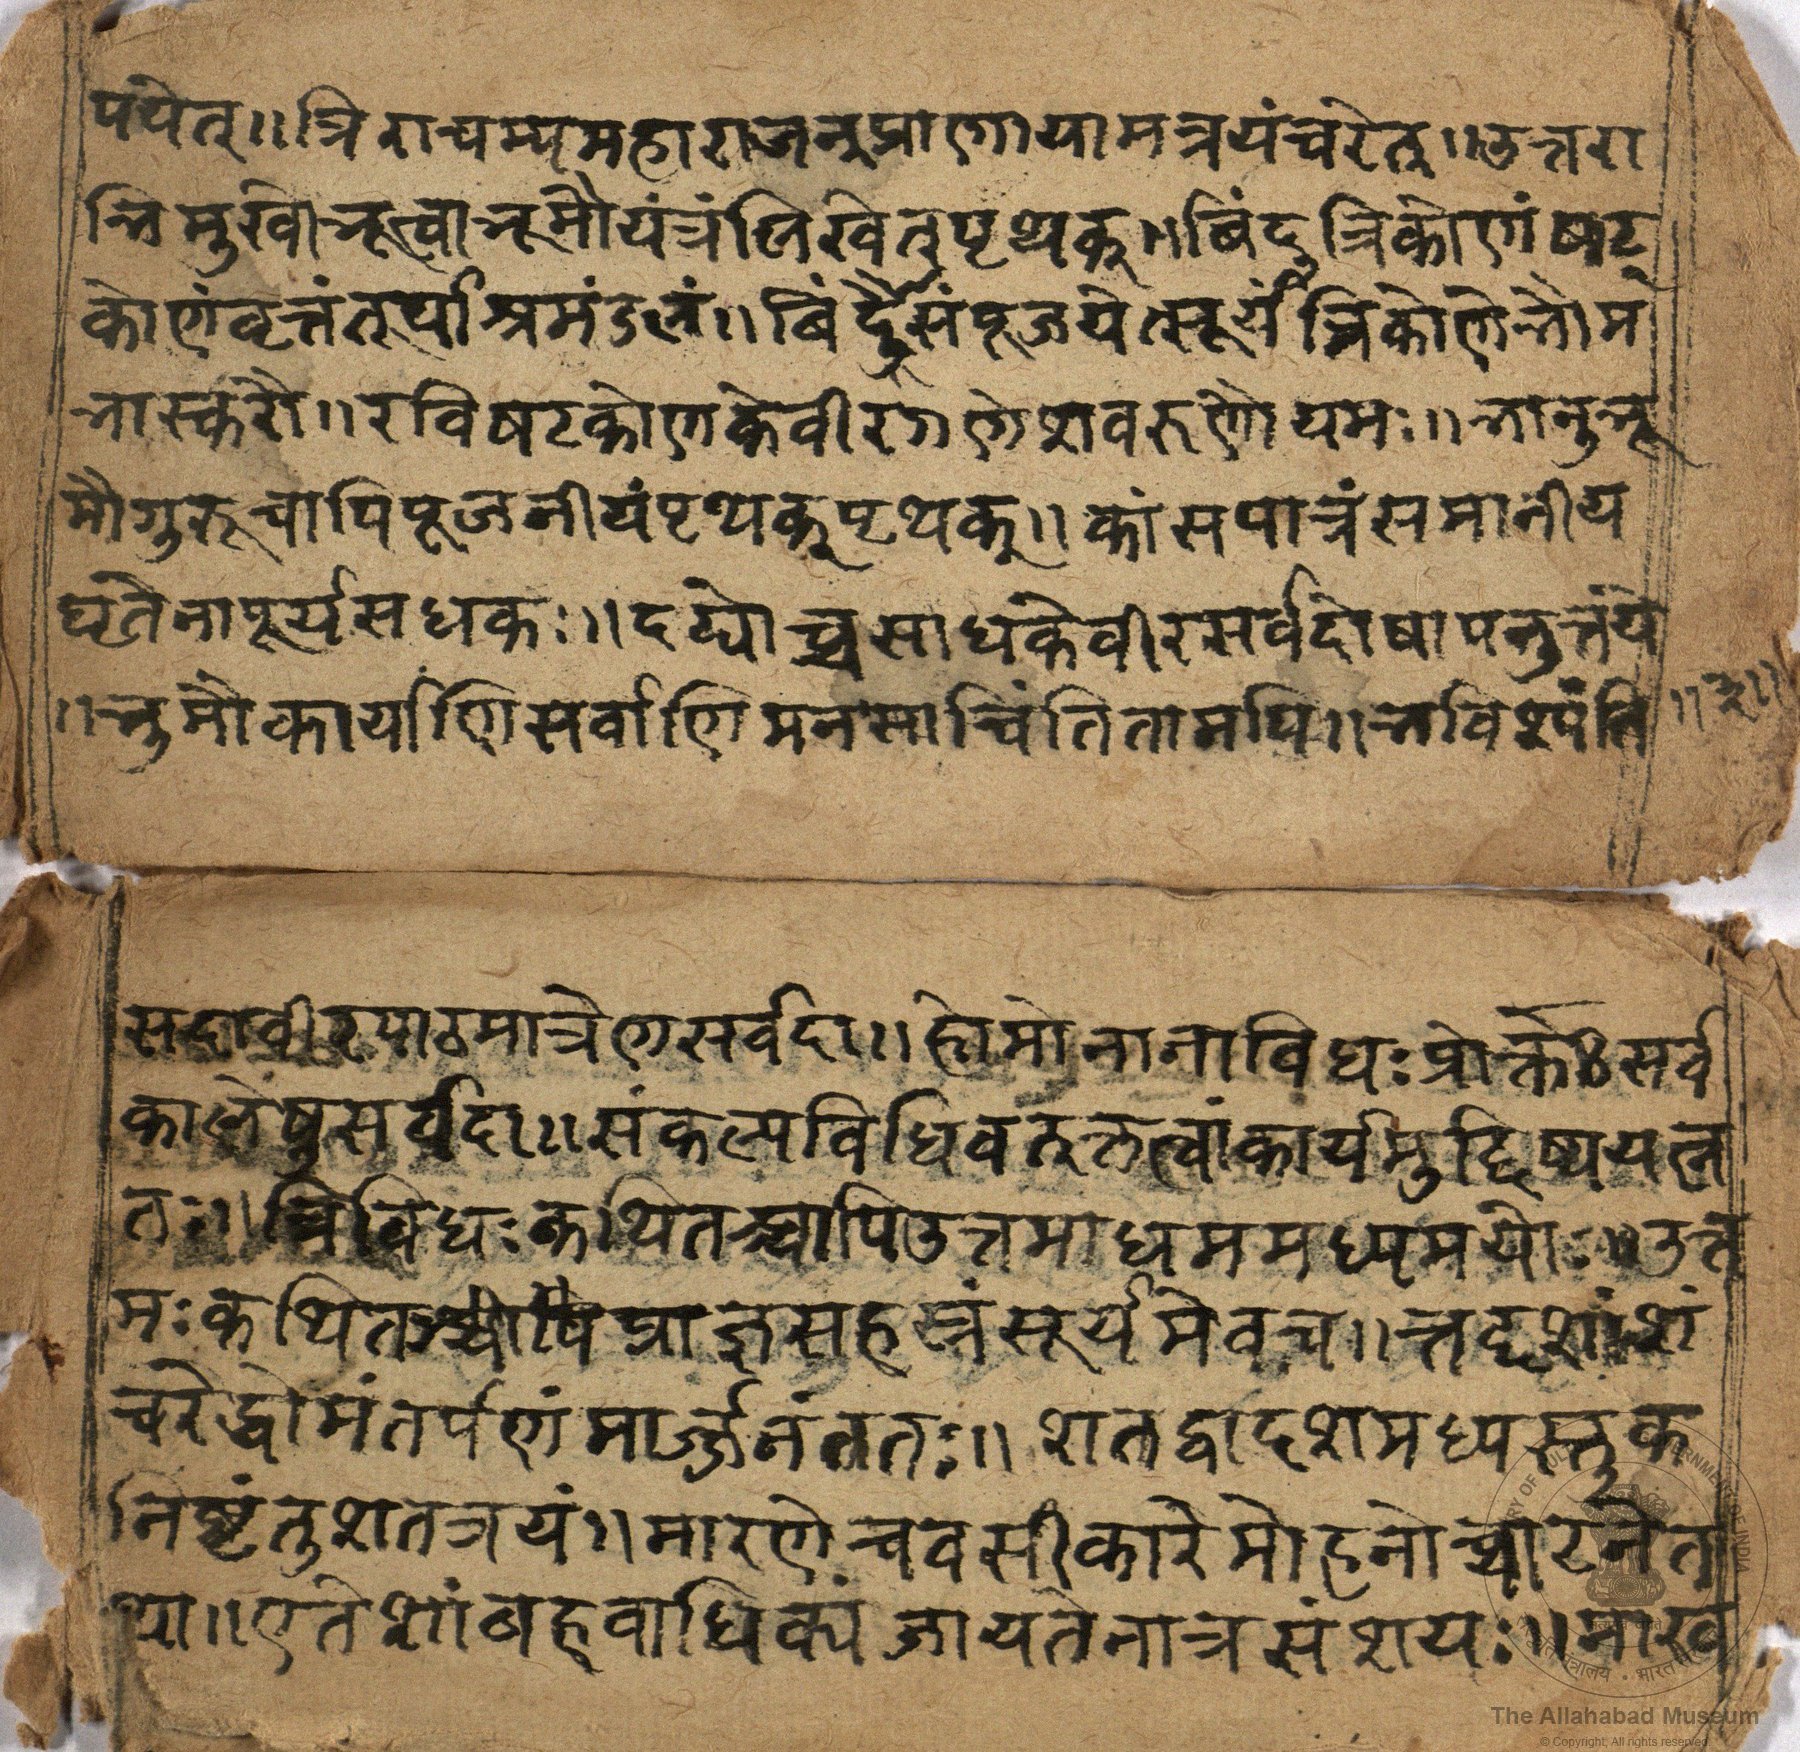 पयेत्॥त्रिराचम्यमहाराजन्प्राणायामत्रयंचरेत्॥उत्तरा
भिमुखोभूत्वाभूमौयंत्रंलिखेत्पृथक्॥बिंदुत्रिकोणंषट्
कोणंवृत्तंतूर्याश्रमंडलं॥बिंदुसंपूजयेत्सूर्यंत्रिकोणेभौम
भास्करौ॥रविषटकोणकेवीरगणेशवरुणोयमः॥भानुभू
मौगुरूचापिपूजनीयंपृथक्पृथक्॥कांसपात्रंसमानीय
घृतैनापूर्यसधकः॥दद्योच्चसाधकेवीरसर्वदोषापनुत्तये
॥भुमौकार्याणिसर्वाणिमनसाचिंतितामपि॥भविश्यंति ॥३॥
सदावीरपाठमात्रेणसर्वदा॥होमोनानाविधःप्रोक्तःसर्व
कालेषुसर्वदा॥संकल्पविधिवत्कृत्वांकार्यमुद्दिष्ययत्न
तः॥त्रिविधःकथितश्चापिउत्तमाधममध्यमयोः॥उत्त
मःकथितश्चापिप्राज्ञसहस्त्रंसूर्यमेवच॥तद्दशांशं
चरेद्धोमंतर्पणंमार्ज्जनंततः॥शतद्वादशमध्यस्तुक
निष्टंतुशतत्रयं॥मारणेचवसीकारेमोहनोच्चाटनेत
था॥एतेशांबहवाधिक्यंजायतेनात्रसंशयः॥माख
The Allahabad Museum
© Copyright, All rights reserved.